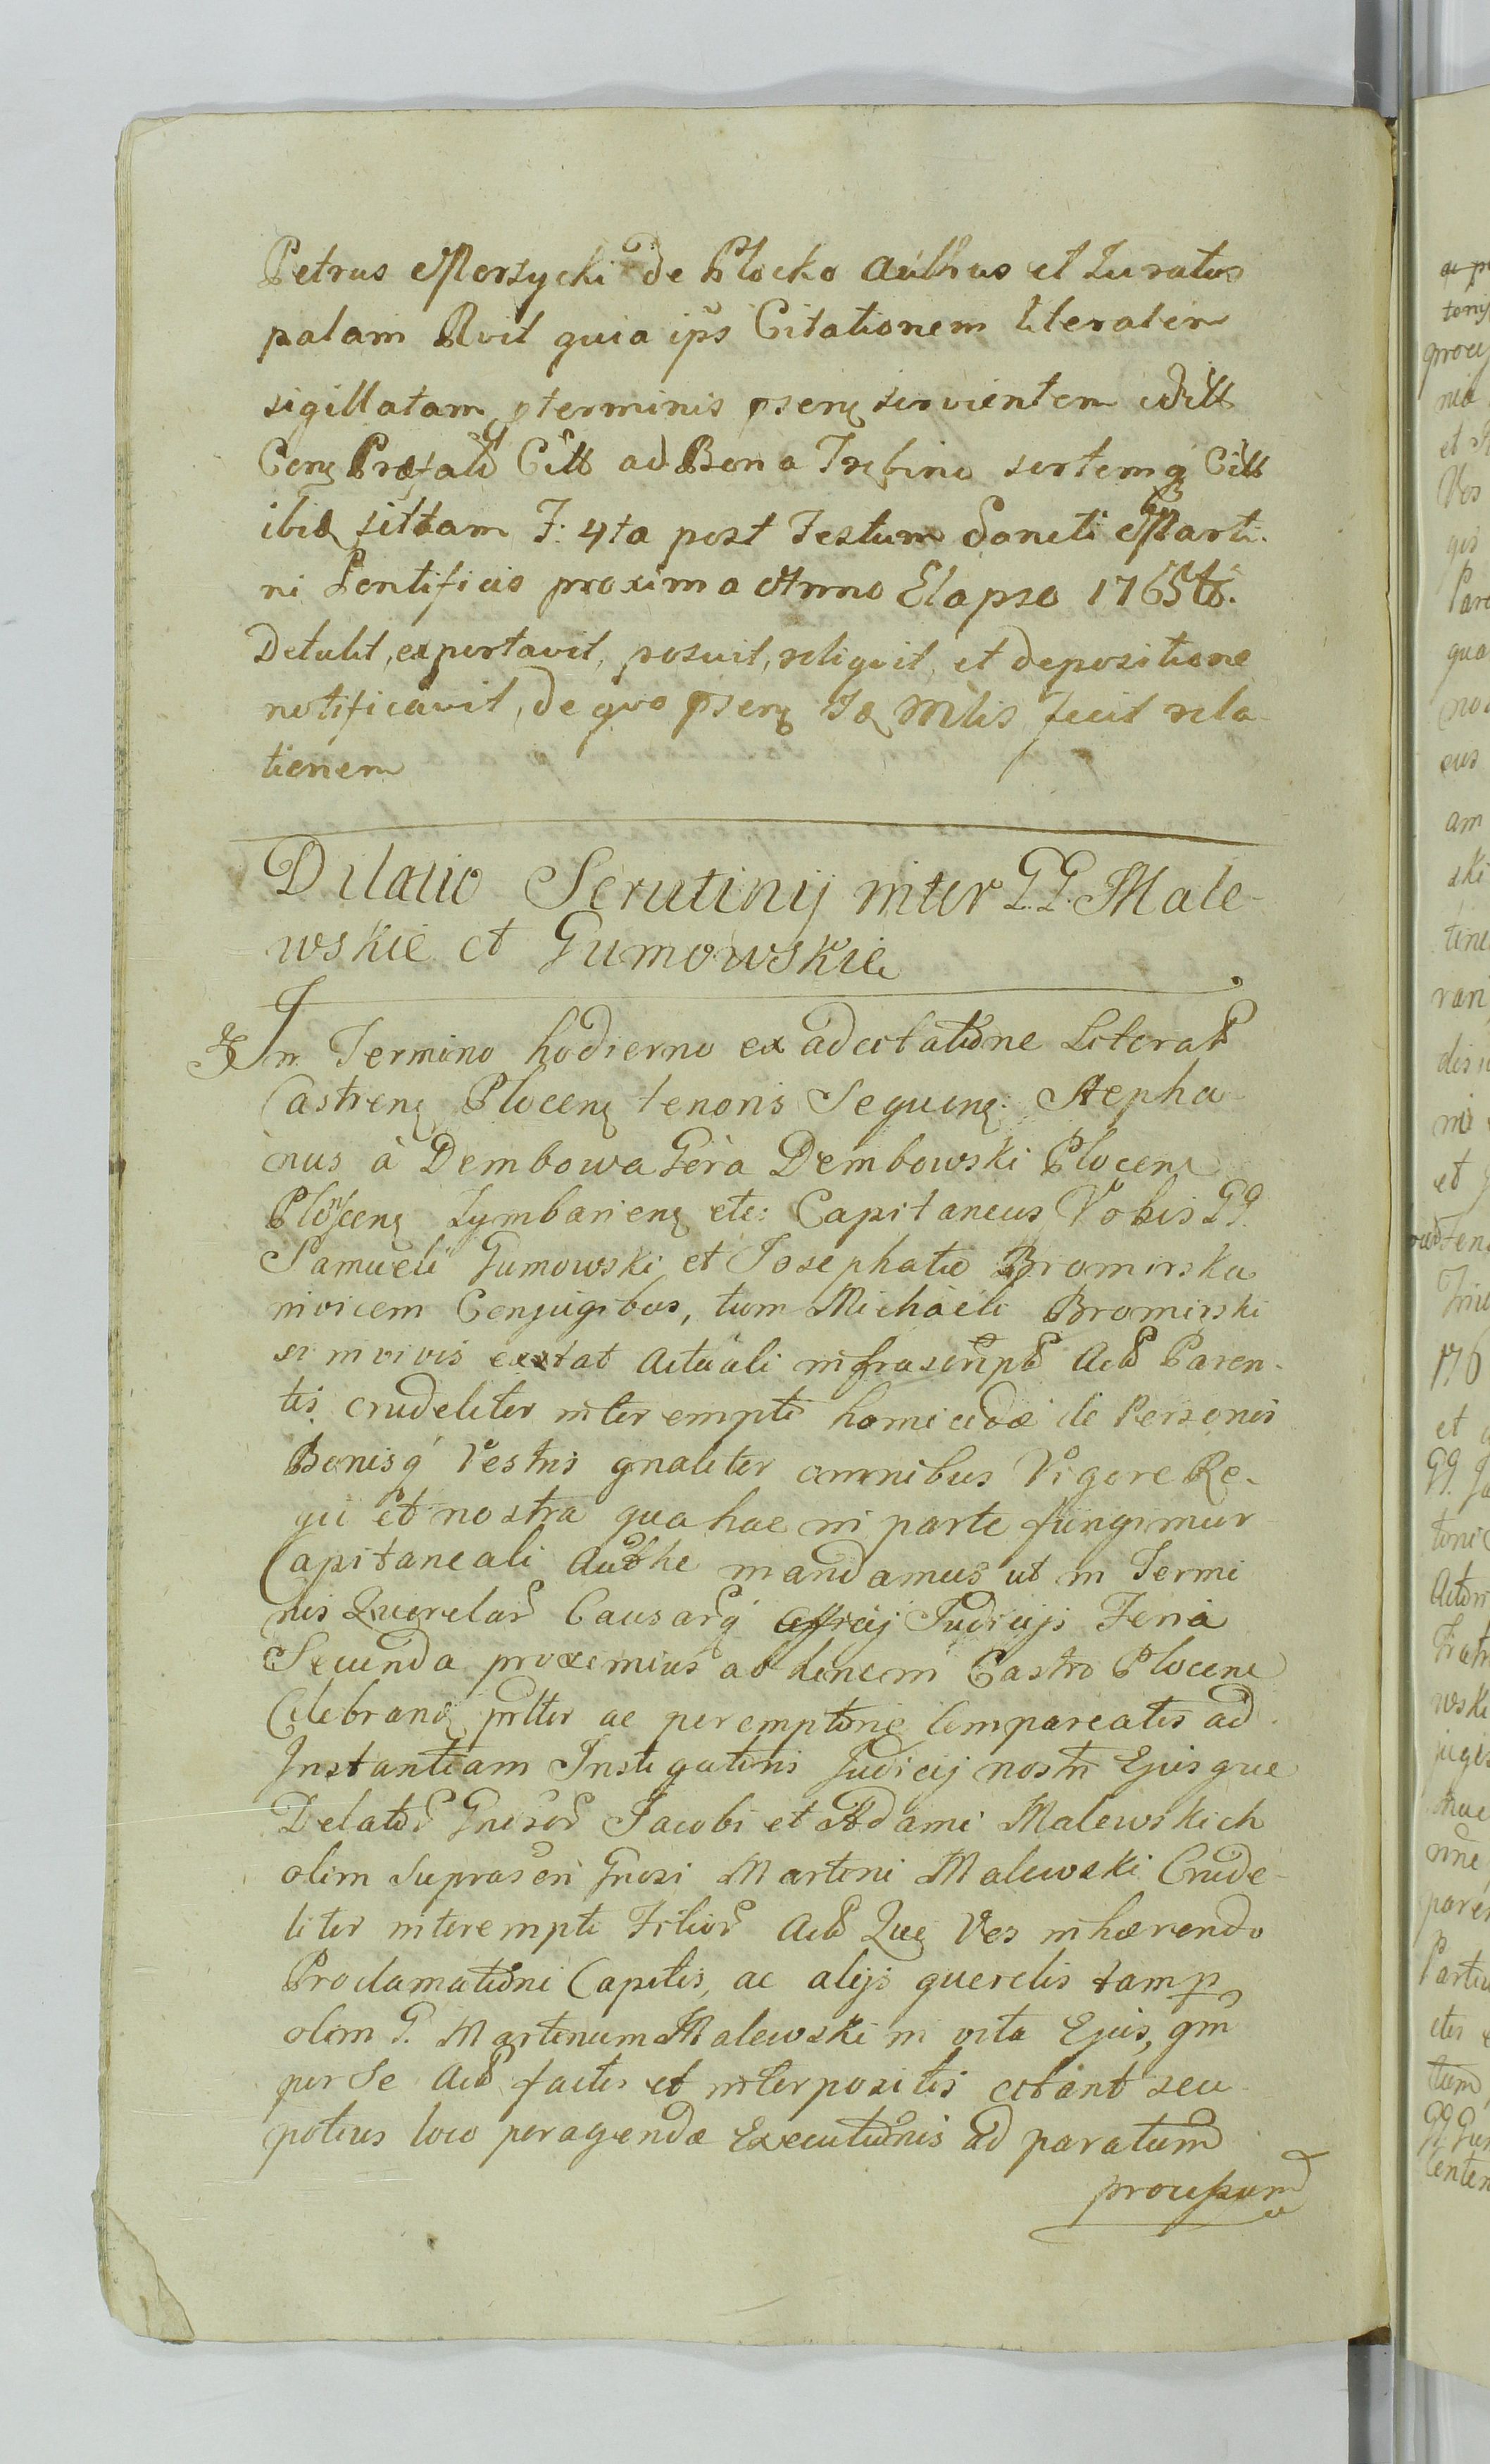 Petrus Morzycki de Plocko authus et Juratus
palam Rvit quia ips Citationem literalem
sigillatam pterminis psenę servientem
Conę Præfatū Citt ad Bona Trębino sortemq Citt
ibidę sittam F: 4ta post Festum Sancti Marti-
ni Pontificis proxima Anno Elapso 1765to.
Detulit, exportavit, posuit, reliquit, et depositione
notificavit, de quo psenę Idę Mtlis fecit rela-
tionem
Dilatio Scrutinij inter GG. Male-
wskie et Gumowskie
In Termino hodierno ex adcitatione Literar
Castrenę Plocenę tenoris Sequenę. Stepha-
nus à Dembowa Góra Dembowski Plocenę
Plonscenę Zymbarienę etc: Capitaneus Vobis GG.
Samueli Gumowski et Josephatæ Bromirska
invicem Conjugibus, tum Michaeli Bromirski
si in vivis extat actuali infrascript Act Paren-
tis crudeliter interempti homicidæ de Personis
Bonisq Vestris gnaliter omnibus Vigore Re-
gii et nostra qua hac in parte fungimur
Capitaneali Authe mandamus ut in Termi
nis Querelar Causarq Officij Judicijs Feria
Secunda proximius ab hinc in Castro Plocenę
Celebrandę prtter ac peremptorię Compareatis ad
Instantiam Instigatoris Judicij nostri Ejusque
Delator Gnsor Jacobi et Adami Malewskich
olim Suprascri Gnosi Martini Malewski Crude-
liter interempti Filior Act Quę Vos inhærendo
Proclamationi Capitis, ac alijs querelis tam p
olim G. Martinum Malewski in vita Ejus, qm
per Se Act factis et interpositis citant seu
potius loco peragendæ Executionis ad paratum